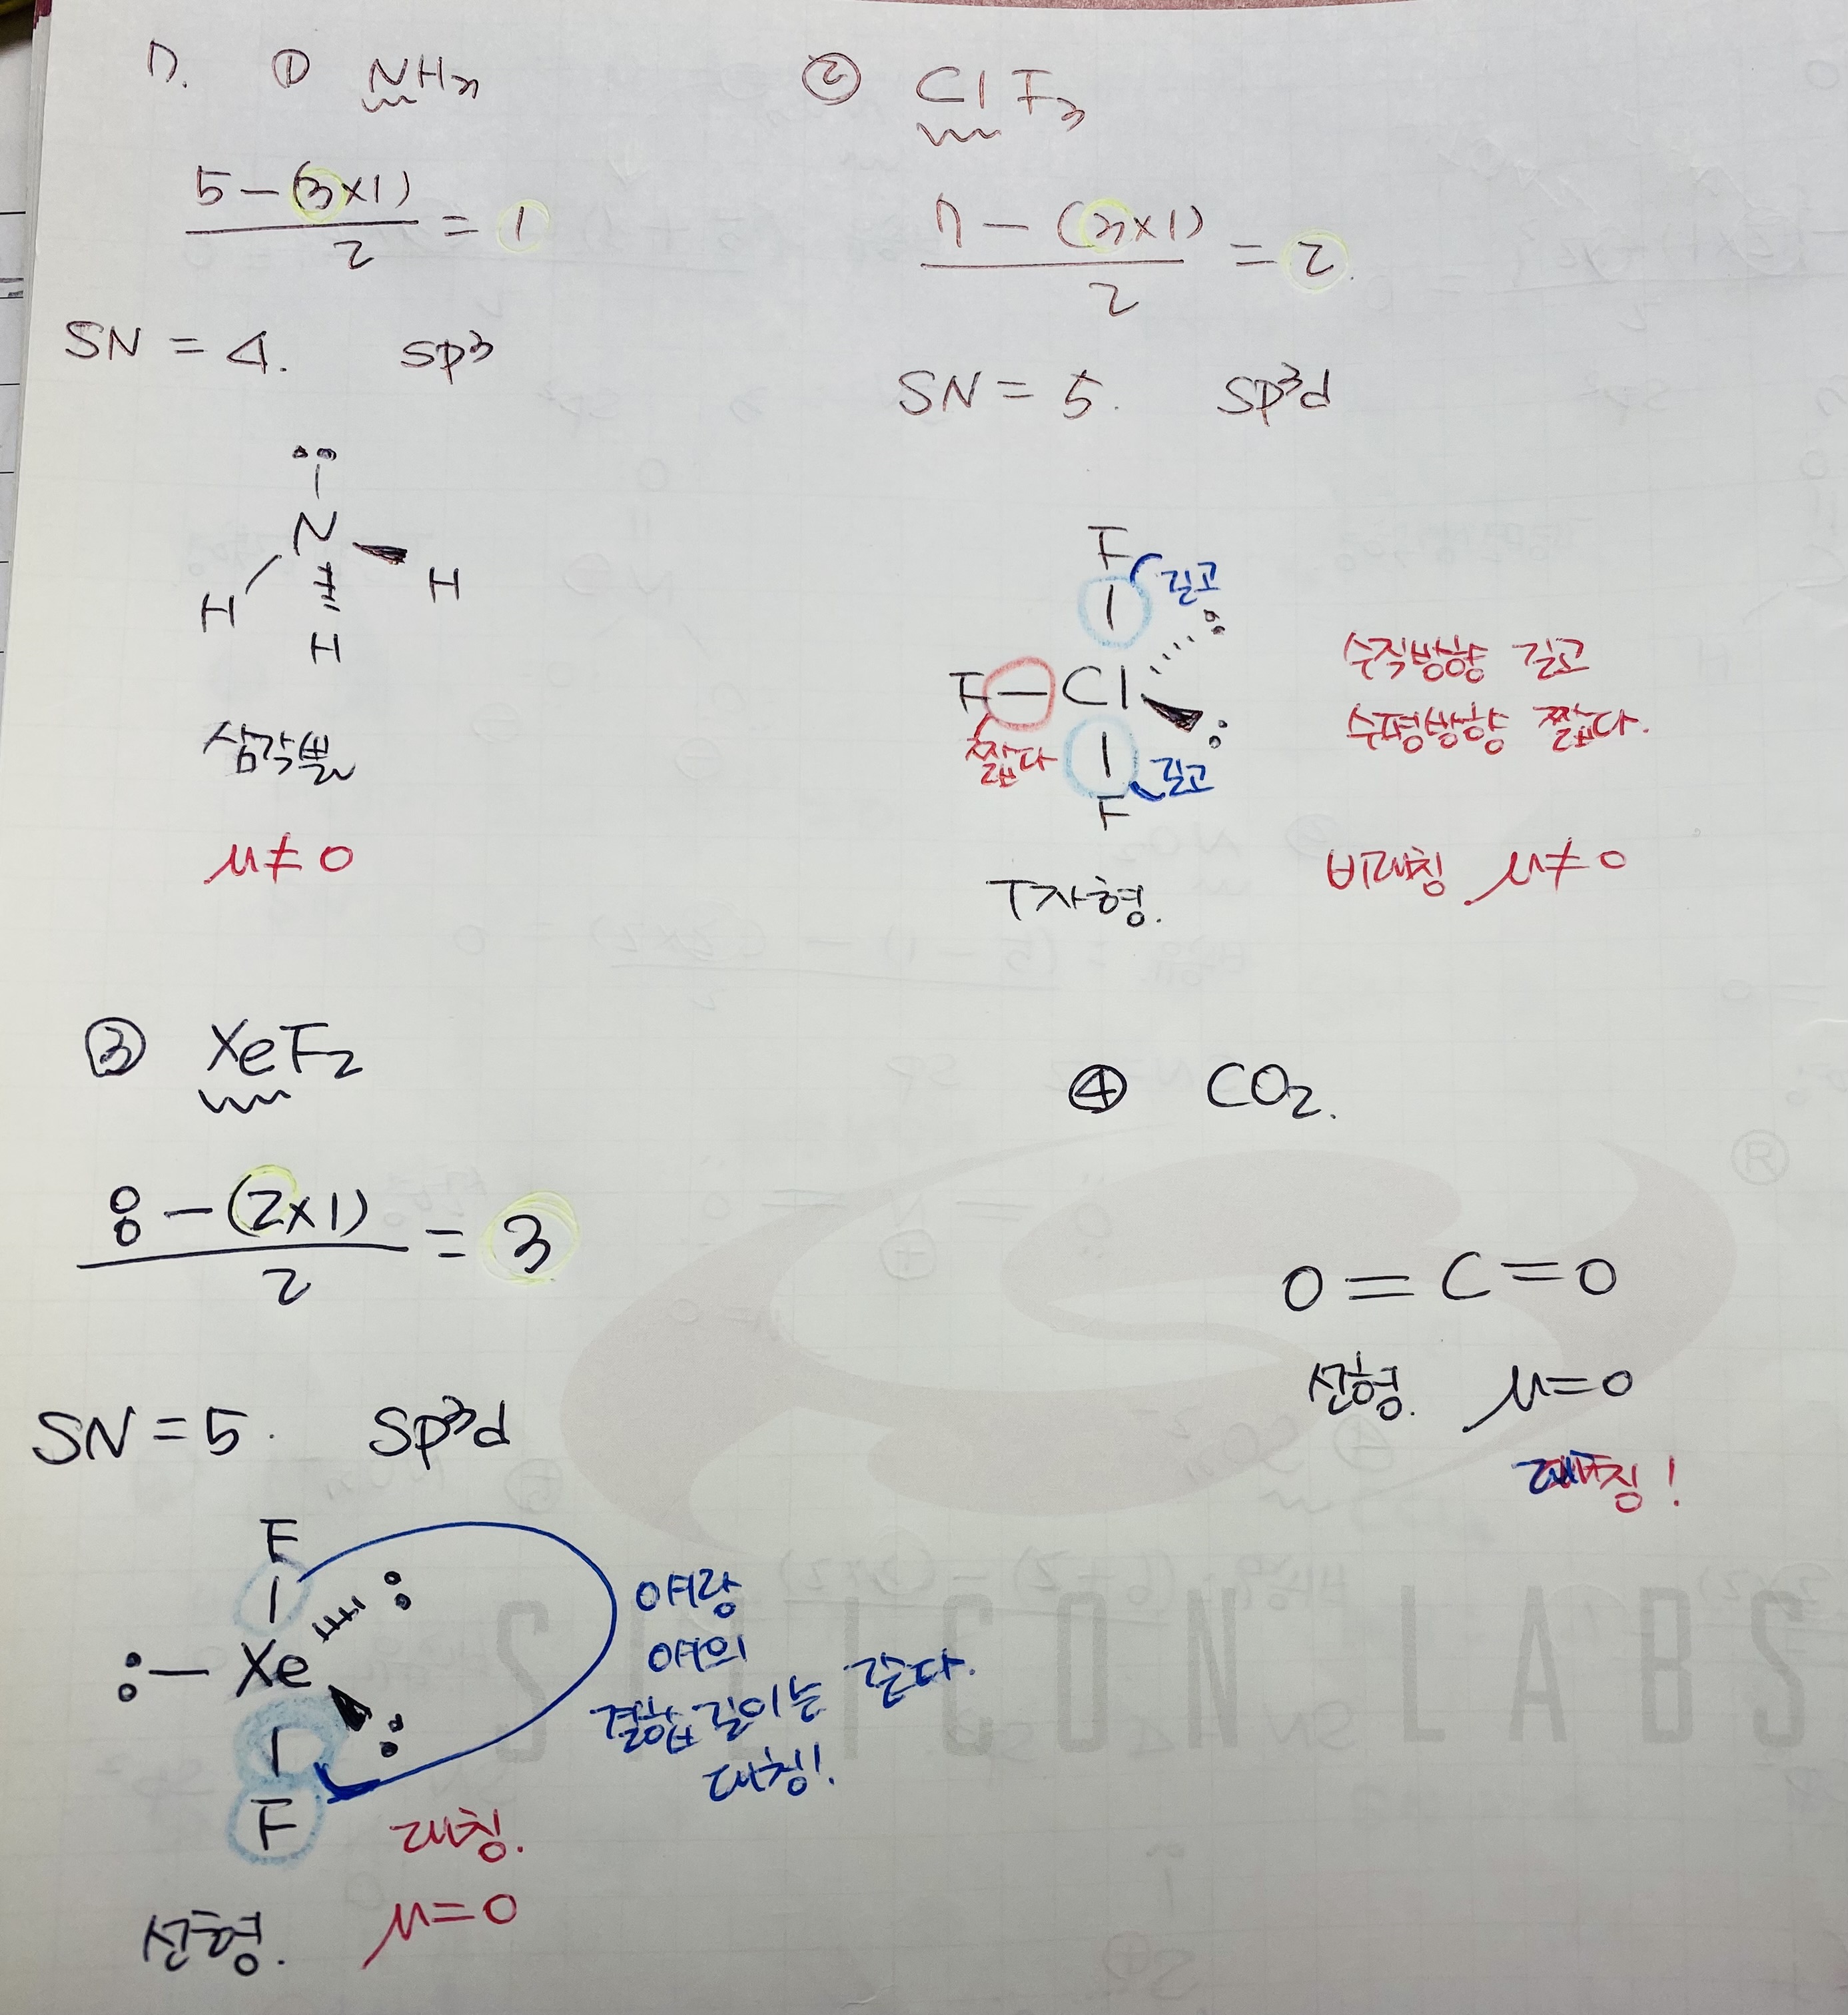 7. ① NH3
5-(3×1) / 2 = 1
SN = 4. sp³
N
H H
H
삼각뿔
μ≠0
② ClF3
7-(3×1) / 2 = 2.
SN = 5. sp³d
F 길고
F-Cl
짧다 길고
F
수직방향 길고
수평방향 짧다.
T자형.
비대칭 μ≠0
③ XeF2
8-(2×1) / 2 = 3
SN=5. sp³d
F
Xe
F
얘랑
얘의
결합길이는 같다.
대칭!
대칭.
선형. μ=0
④ CO2.
O=C=O
선형. μ=0
대칭!
SILICON LABS
®